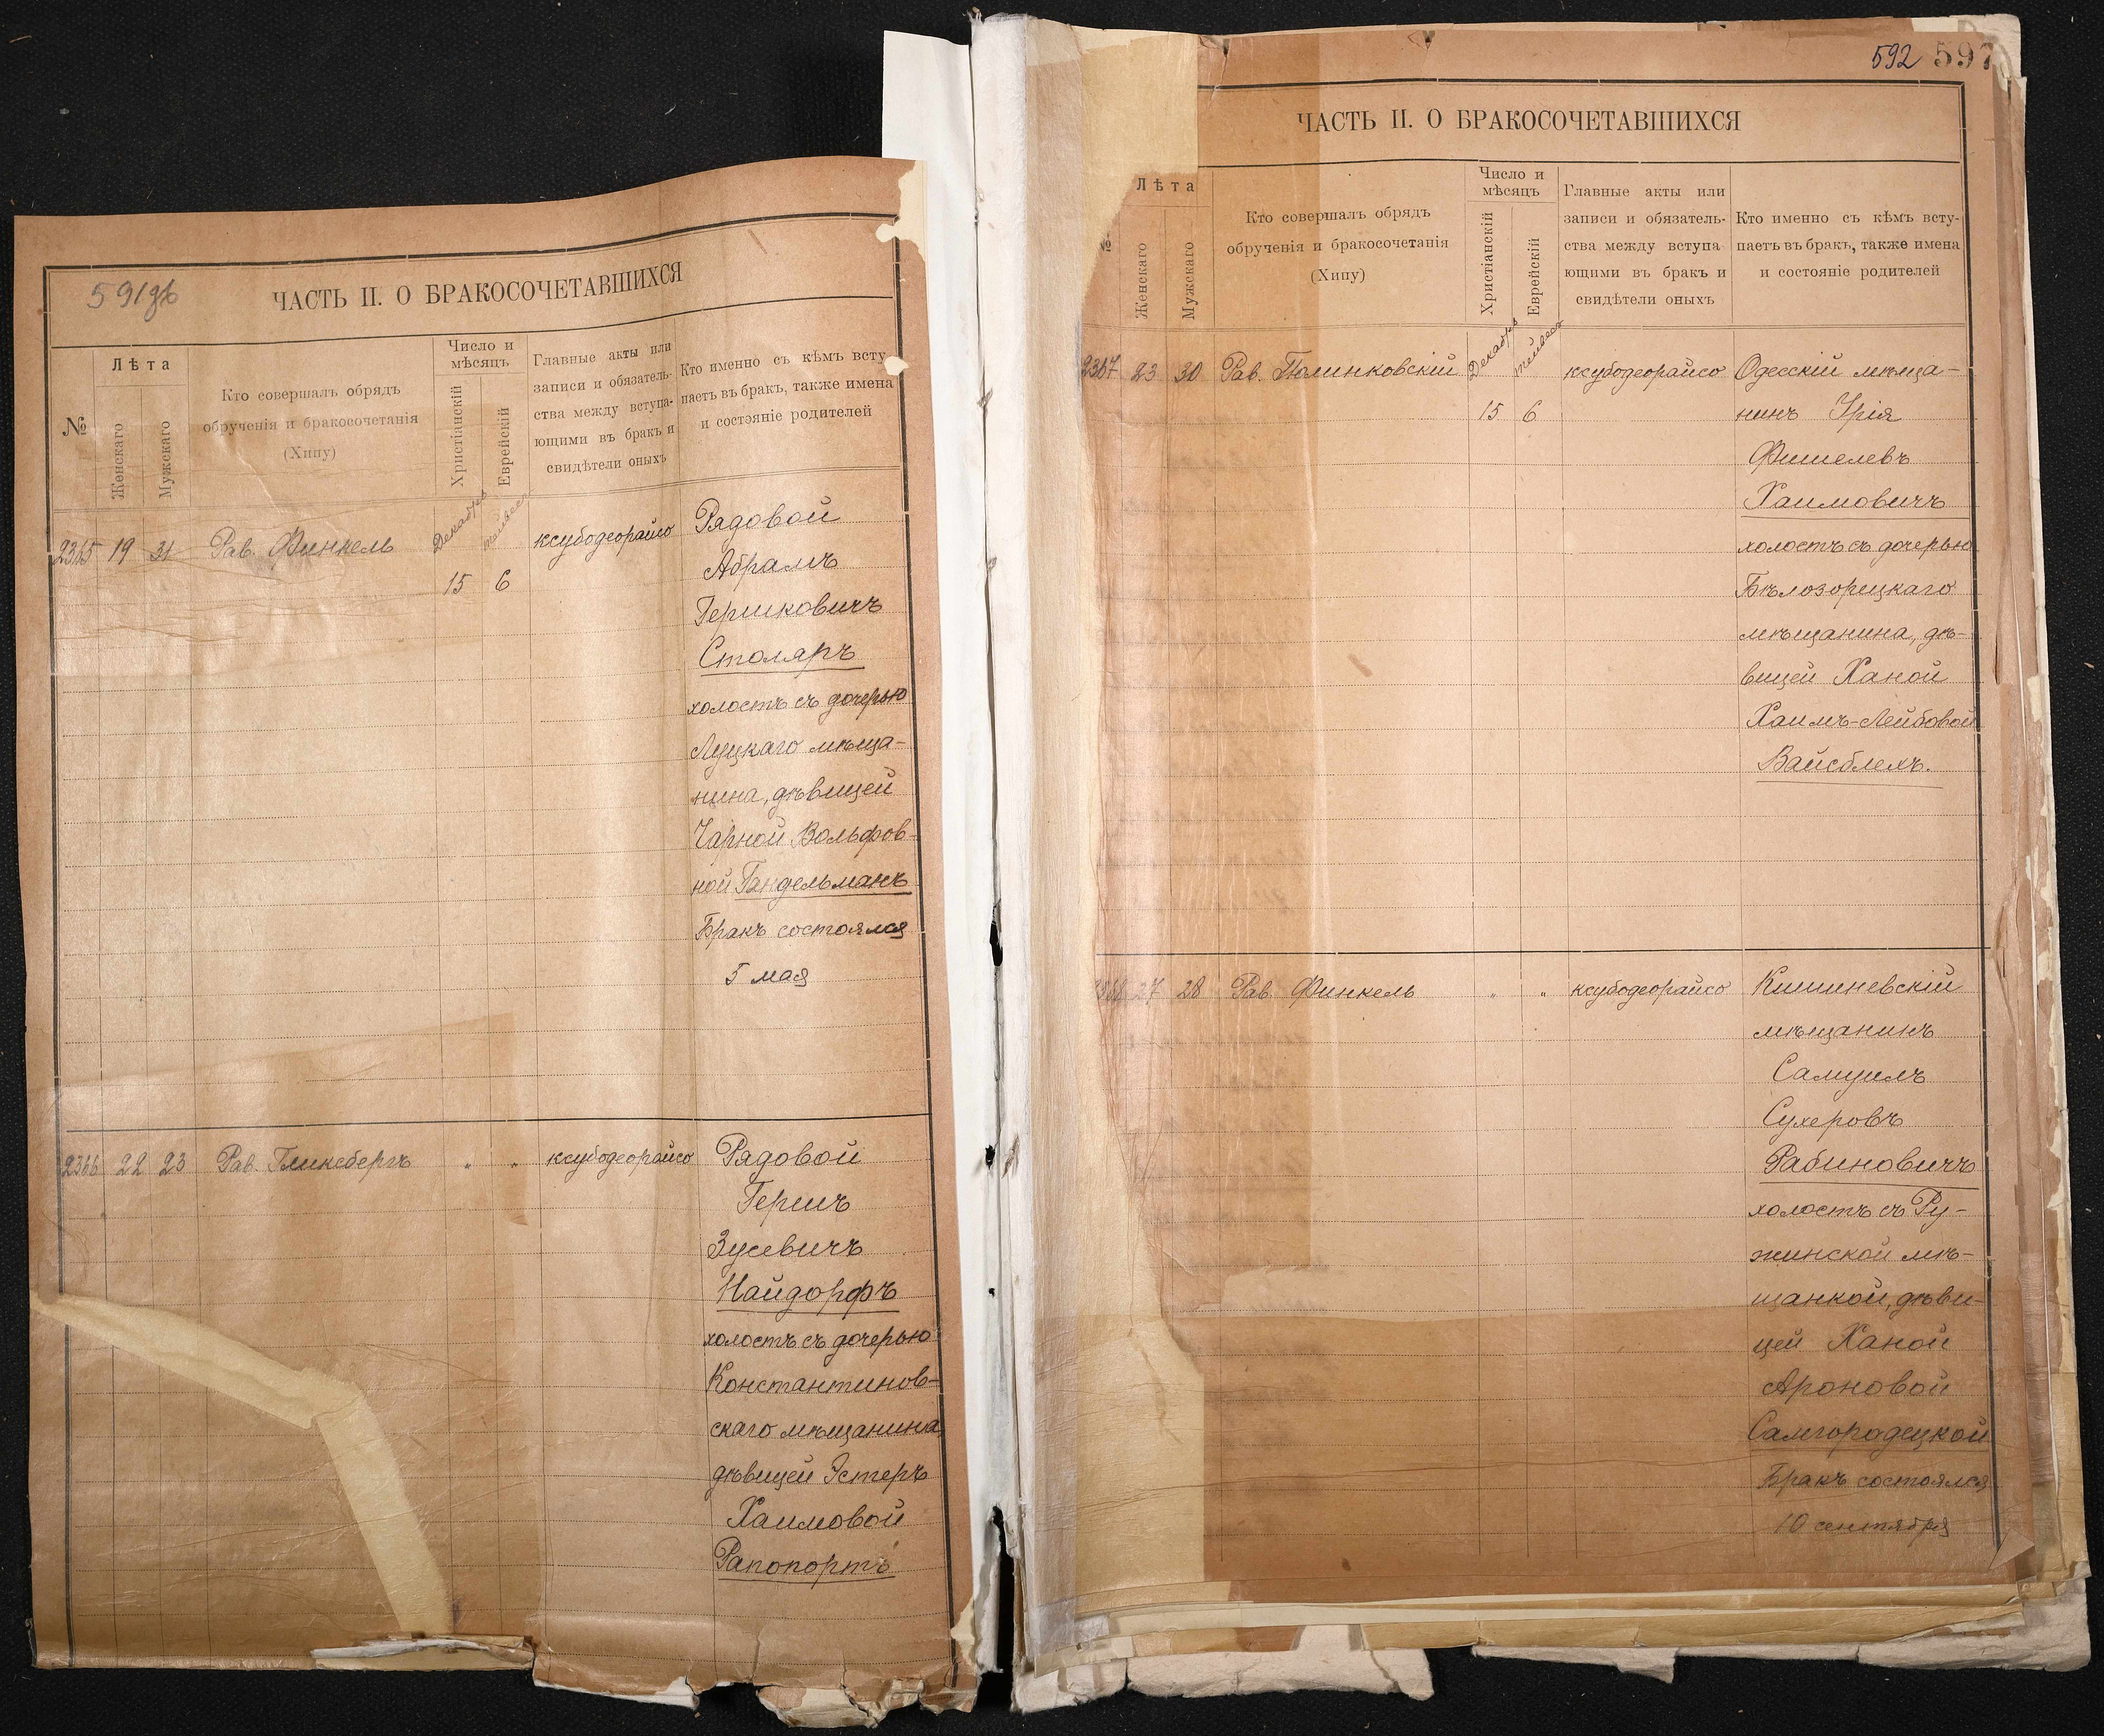 591об
ЧАСТЬ II. О БРАКОСОЧЕТАВШИХСЯ
№
Лѣта
Женскаго
Мужскаго
Кто совершалъ обрядъ
обрученія и бракосочетанія
(Хипу)
Число и
мѣсяцъ
Христіанскій
Еврейскій
Главные акты или
записи и обязатель-
ства между вступа-
ющими въ бракъ и
свидѣтели оныхъ
Кто именно съ кѣмъ всту-
паетъ въ бракъ, также имена
и состояніе родителей
2365 19 31 Рав. Финкель Декабрь тейвес ксубодеорайсо Рядовой
15 6 Абрамъ
Гершковичъ
Столяръ
холостъ съ дочерью
Луцкаго мѣща-
нина, дѣвицей
Чарной Вольфов-
ной Гандельманъ
Бракъ состоялся
5 мая
2366 22 23 Рав. Глинсбергъ " " ксубодеорайсо Рядовой
Гершъ
Зусевичъ
Найдорфъ
холостъ съ дочерью
Константинов-
скаго мѣщанина,
дѣвицей Эстеръ
Хаимовой
Рапопортъ
592 597
ЧАСТЬ II. О БРАКОСОЧЕТАВШИХСЯ
№
Лѣта
Женскаго
Мужскаго
Кто совершалъ обрядъ
обрученія и бракосочетанія
(Хипу)
Число и
мѣсяцъ
Христіанскій
Еврейскій
Главные акты или
записи и обязатель-
ства между вступа
ющими въ бракъ и
свидѣтели оныхъ
Кто именно съ кѣмъ всту-
паетъ въ бракъ, также имена
и состояніе родителей
2367 23 30 Рав. Полинковскій Декабрь тейвес ксубодеорайсо Одесскій мѣща-
15 6 нинъ Урія
Фишелевъ
Хаимовичъ
холостъ съ дочерью
Бѣлозорецкаго
мѣщанина, дѣ-
вицей Ханой
Хаимъ-Лейбовой
Вайсблехъ.
2368 27 28 Рав. Финкель " " ксубодеорайсо Кишиневскій
мѣщанинъ
Самуилъ
Сухеровъ
Рабиновичъ
холостъ съ Ру-
жинской мѣ-
щанкой, дѣви-
цей Ханой
Ароновой
Самгородецкой
Бракъ состоялся
10 сентября